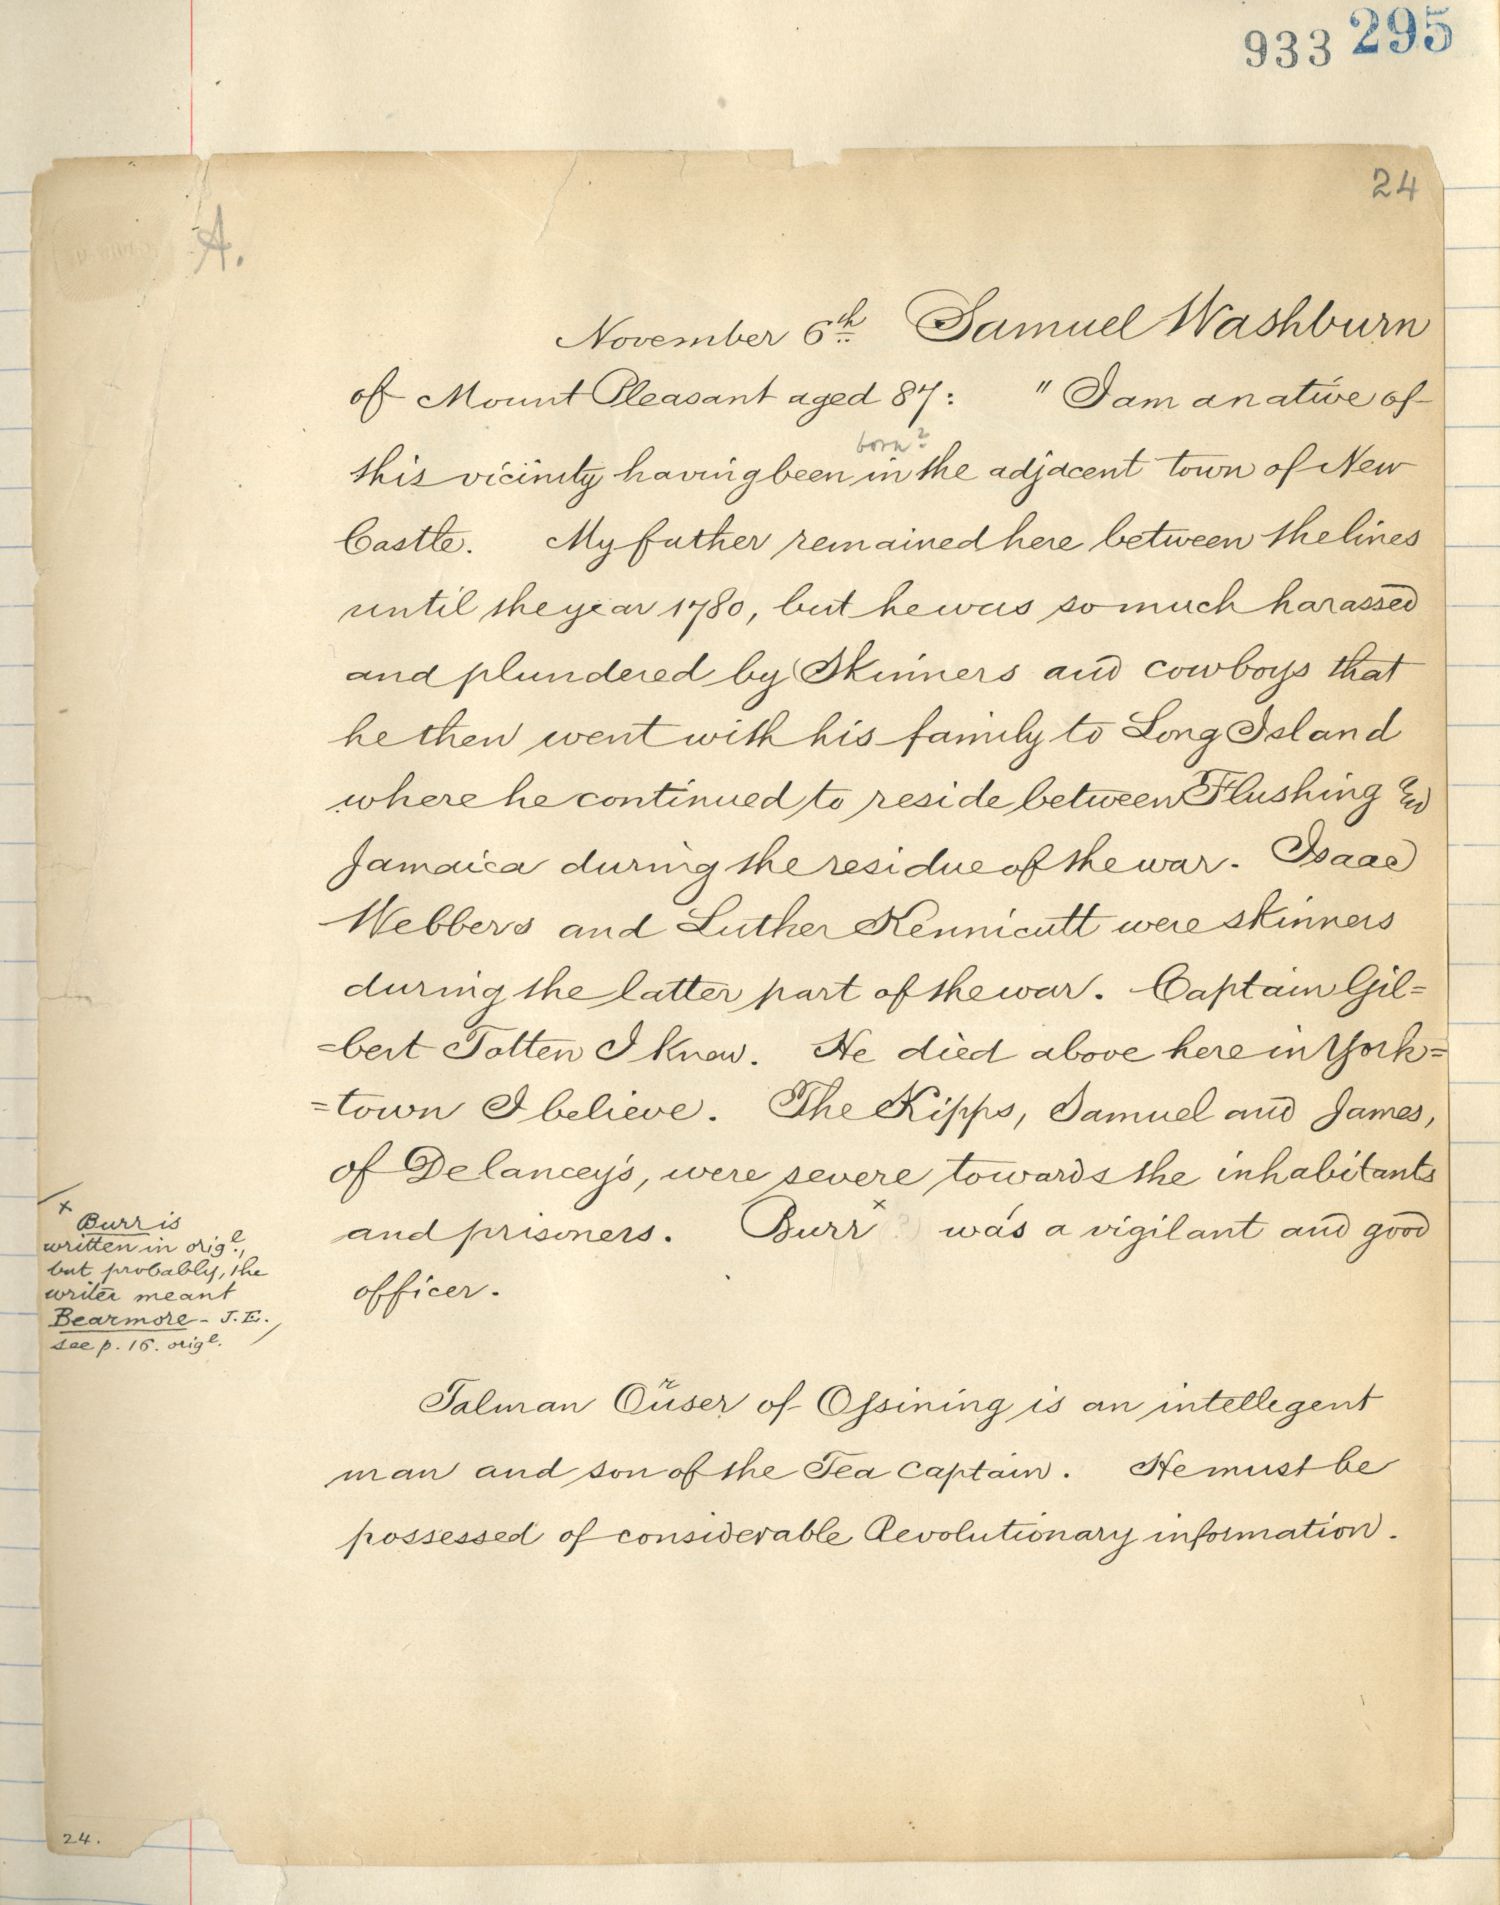 933 295
24
A.
November 6th Samuel Washburn
of Mount Pleasant aged 87: " I am a native of
born?
this vicinity having been in the adjacent town of New
Castle. My father remained here between the lines
until the year 1780, but he was so much harassed
and plundered by Skinners and cowboys that
he then went with his family to Long Island
where he continued to reside between Flushing and
Jamaica during the residue of the war. Isaac
Webbers and Luther Kennicutt were skinners
during the latter part of the war. Captain Gil=
=bert Totten I knew. He died above here in York=
=town I believe. The Kipps, Samuel and James,
of Delancey's, were severe towards the inhabitants
and prisoners. Burr x (?) was a vigilant and good
officer.
x
Burr is
written in origl.,
but probably, the
writer meant
Bearmore - J.E.
see p. 16. origl.
Talman Ouser of Ossining is an intellegent
r
man and son of the Tea Captain. He must be
possessed of considerable Revolutionary information.
24.